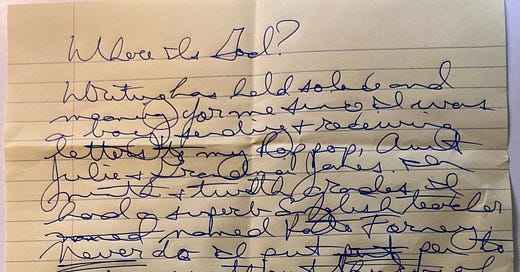 Where Is God?
Writing has held solace and
meaning for me since I was
a boy sending & receiving
letters to my Pop pop, Aunt
Julie & Grandma Janes. In
ninth & twelfth grades, I
had a superb English teacher
named named Kate Forney.
Never do I put put pen to